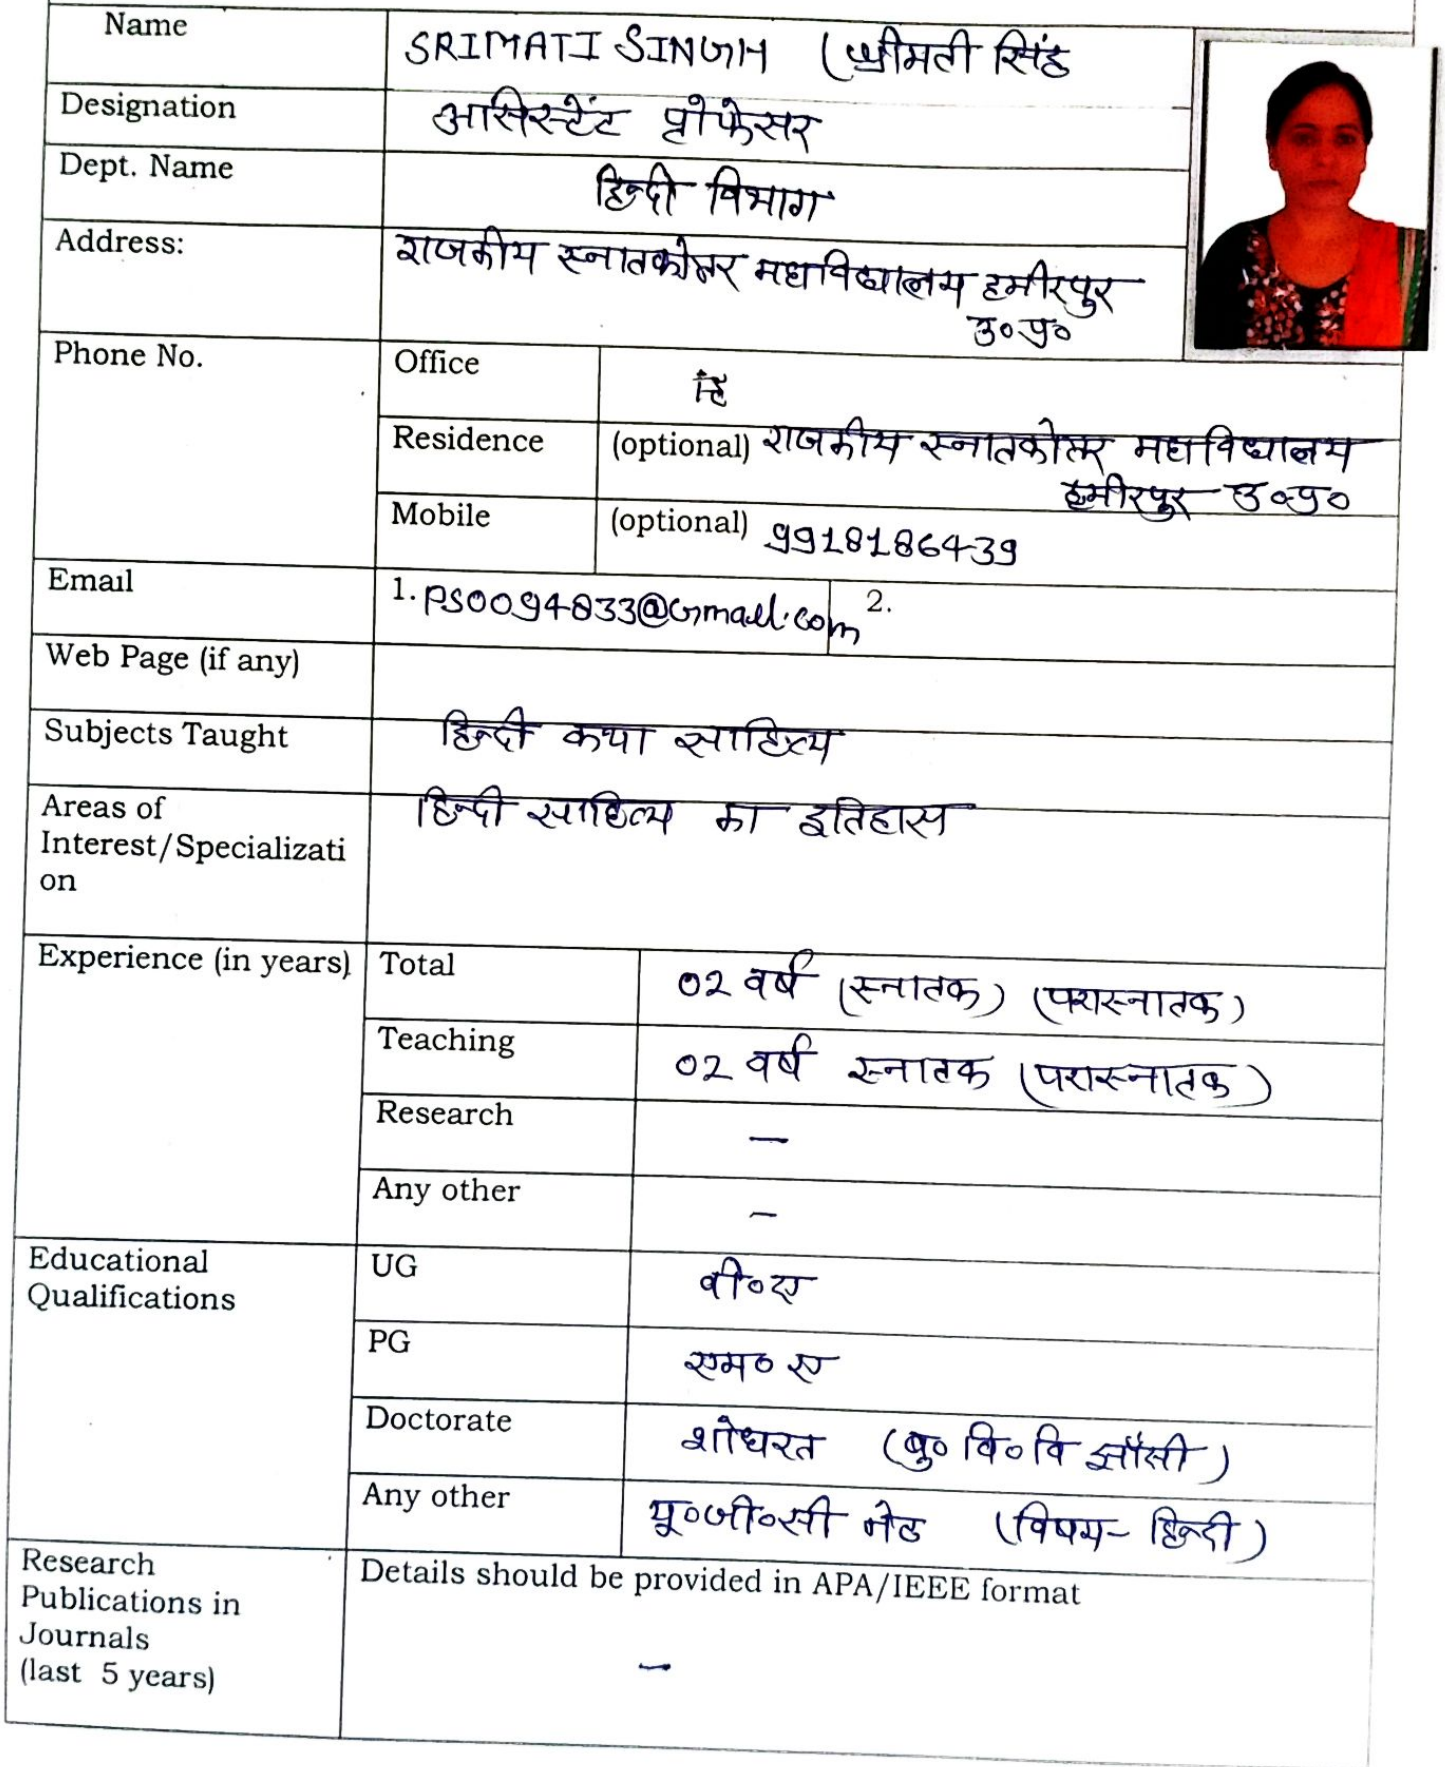 Name SRIMATI SINGH (श्रीमती सिंह
Designation असिस्टेंट प्रोफेसर
Dept. Name हिन्दी विभाग
Address: राजकीय स्नातकोत्तर महाविद्यालय हमीरपुर
उ०प्र०
Phone No. Office
Residence (optional) राजकीय स्नातकोत्तर महाविद्यालय
हमीरपुर उ०प्र०
Mobile (optional) 9918186439
Email 1. PS0094833@Gmail.com 2.
Web Page (if any)
Subjects Taught हिन्दी कथा साहित्य
Areas of हिन्दी साहित्य का इतिहास
Interest/Specializati
on
Experience (in years) Total 02 वर्ष (स्नातक) (परास्नातक)
Teaching 02 वर्ष स्नातक (परास्नातक)
Research —
Any other –
Educational UG बी०ए
Qualifications
PG एम० ए
Doctorate शोधरत (बु० वि० वि झाँसी)
Any other यू०जी०सी नेट (विषय- हिन्दी)
Research Details should be provided in APA/IEEE format
Publications in
Journals
(last 5 years) –